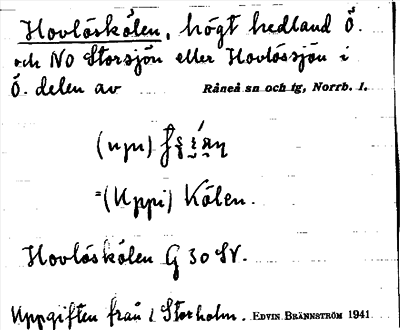 Hovlöskölen, högt hedland Ö.
och NO Storsjön eller Hovlössjön i
Ö. delen av Råneå sn och tg, Norrb. l.
(upi)
=(Uppi) Kölen.
Hovlöskölen G 30 SV.
Uppgiften från i Storholm. EDVIN BRÄNNSTRÖM 1941